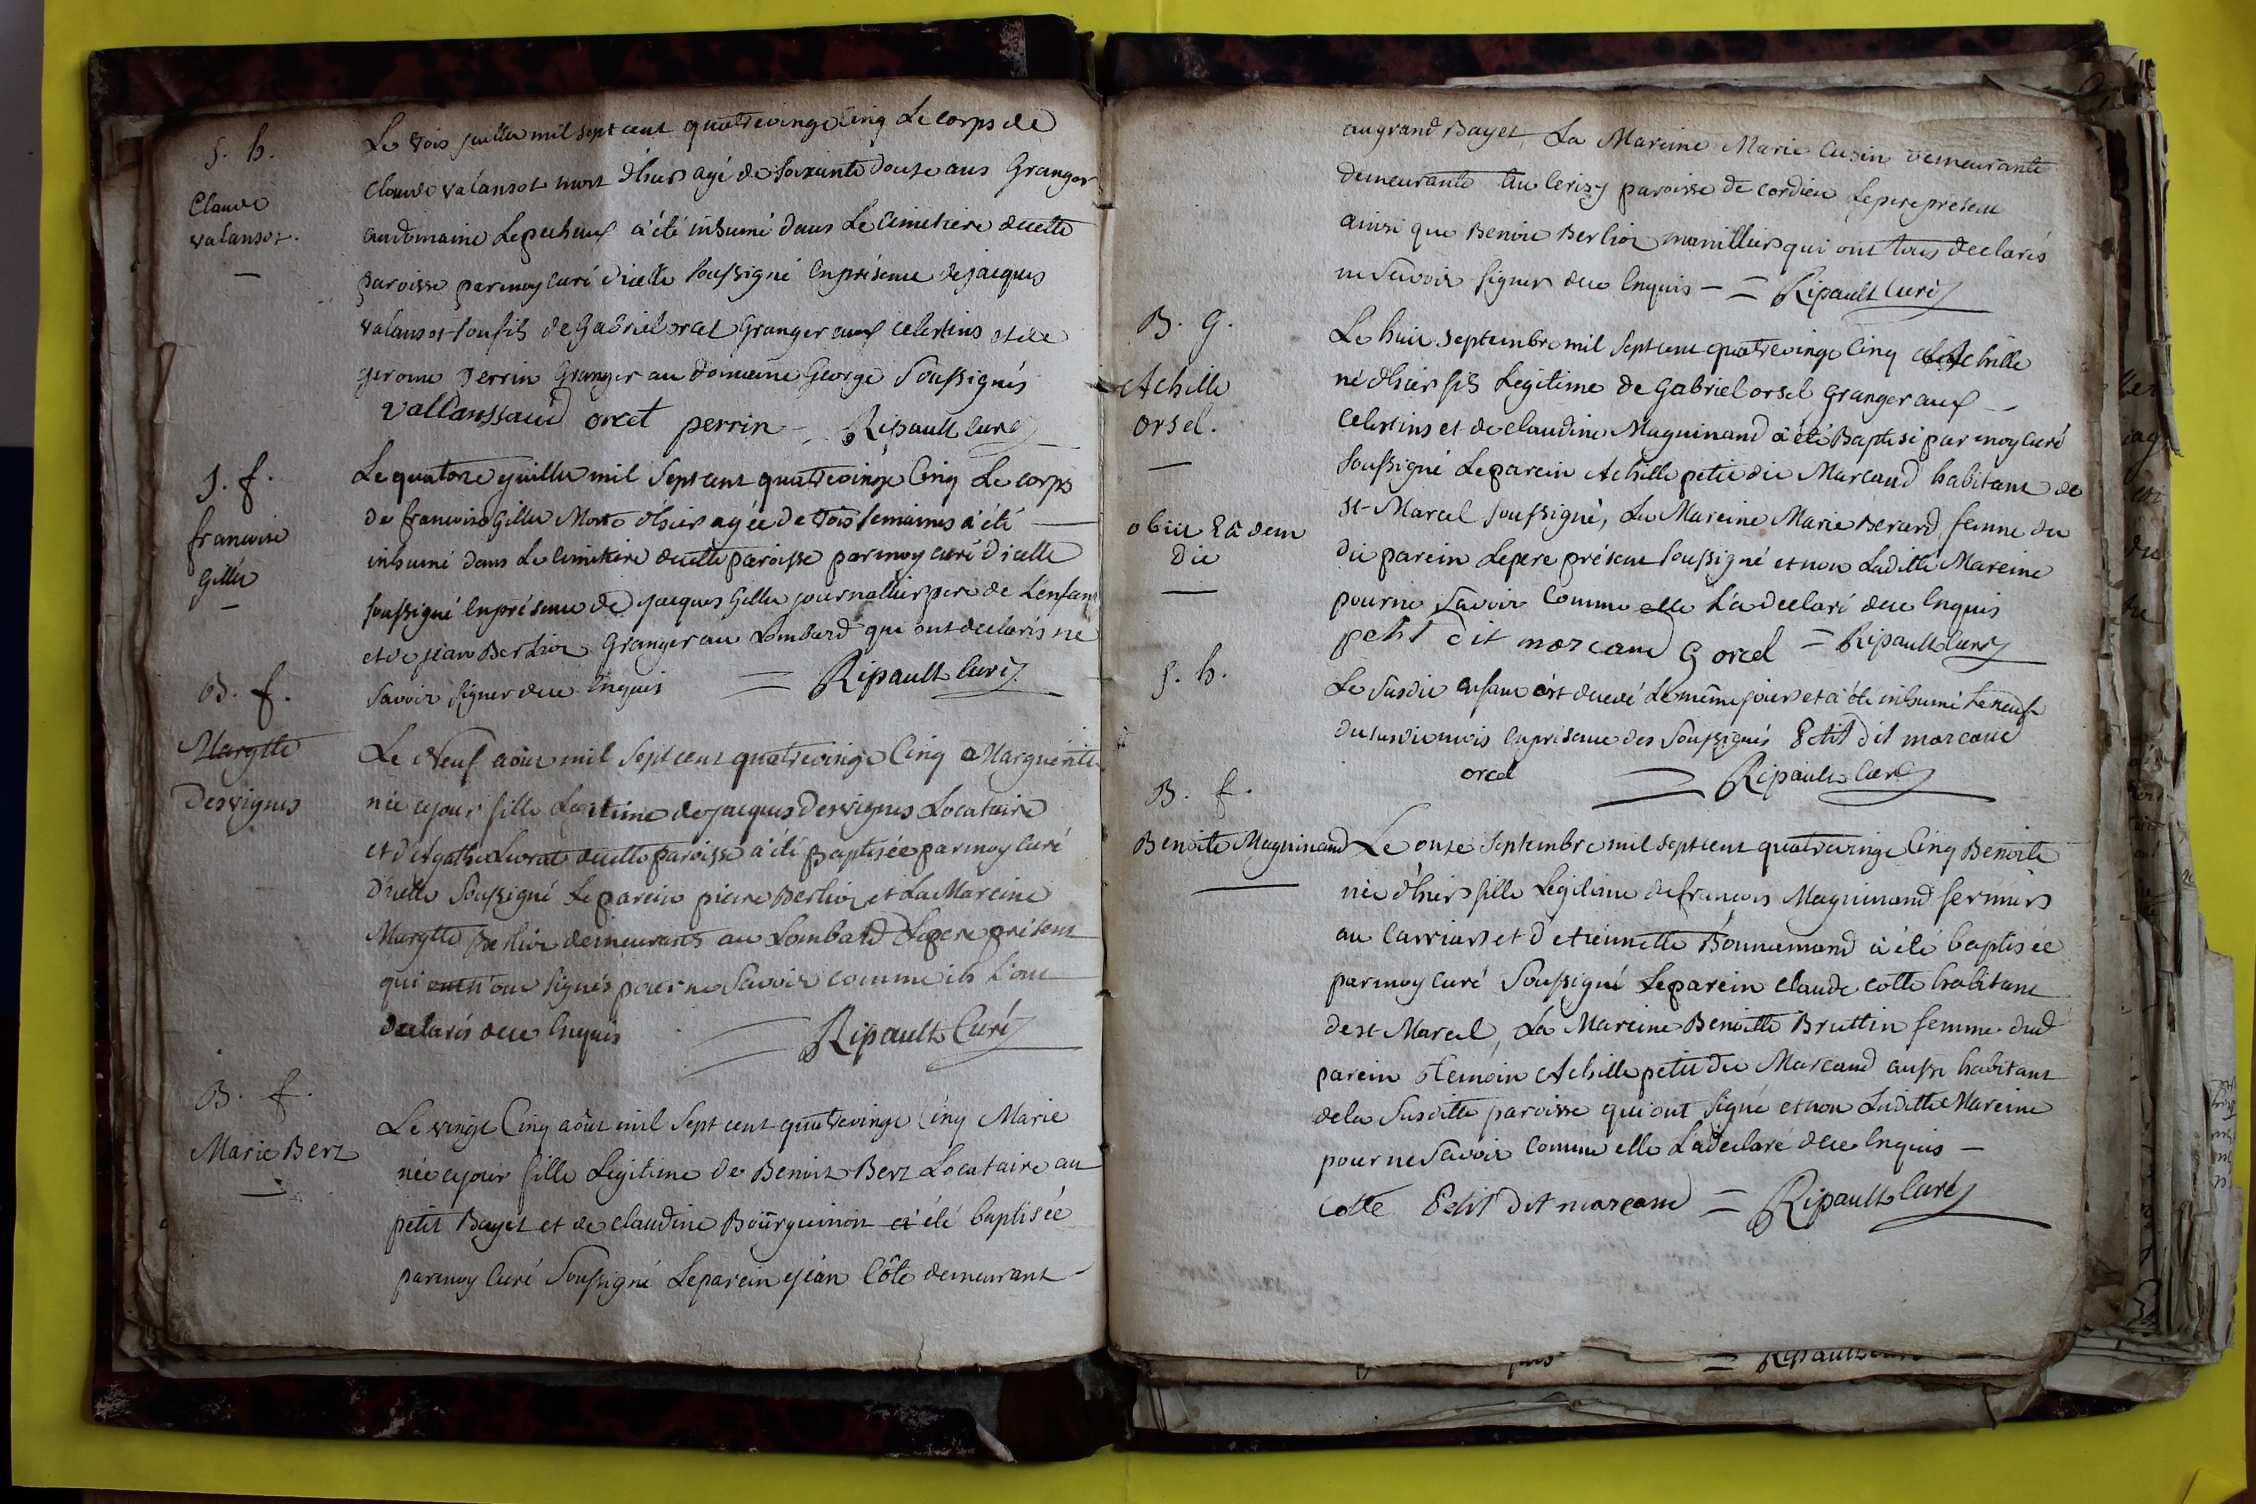 S. h.
Claude
valansot.
Le trois juillet mil sept cent quatrevingt Cinq Le corps de
Claude valansot mort d'hier agé de soixante douze ans Granger
au domaine Lepecheux a été inhumé dans Le Cimetiere decette
paroisse parmoy Curé d'icelle soussigné Enprésence dejacques
valansot sonfils de Gabriel orcel Granger aux Celestins et de
gerome perrin Granger au domaine George Soussignés
vallanssaud orcet perrin Ripault Curé
S. f.
francoise
Gillet
Le quatorze juillet mil Sept cent quatrevingt Cinq Le corps
de francoise Gillet Morte d'hier agée de trois semaines a été
inhumé dans Le Cimetiere decette paroisse parmoy curé d'icelle
soussigné Enprésence de jacques Gillet journallier pere de L'enfant
et de jean Berlioz Granger au Lombard qui ont declarés ne
savoir signer dece Enquis = Ripault Curé
B. f.
Margtte
Desvignes
Le Neuf août mil Sept cent quatrevingt Cinq Marguerite
née cejour fille Legitime de jacques Desvignes Locataire
et d'Agathe Livrat decette paroisse a été Baptisée parmoy Curé
d'icelle Soussigné Le parein pierre Berlioz et La Mareine
Margtte Berlioz demeurants au Lombard Lepere présent
qui ont n'ont signés pour ne Savoir comme ils L'ont
declarés dece Enquis Ripault Curé
B. f.
Marie Berz
Le vingt Cinq août mil Sept cent quatrevingt Cinq Marie
née cejour fille Legitime de Benoit Berz Locataire au
petit Bayet et de claudine Bourguinon a été baptisée
parmoy Curé Soussigné Leparein jean Côte demeurant
augrand Bayet, La Mareine Marie Cusin demeurante
demeurante au Cerizy paroisse de Cordieu Lepere present
ainsi que Benoit Berlioz manillier qui ont tous declarés
ne Savoir Signer dece Enquis = Ripault Curé
B. g.
Achille
orsel.
obiit Eâdem
die
Le huit Septembre mil Sept cent quatrevingt Cinq Achille
né d'hier fils Legitime de Gabriel orsel Granger aux
Celestins et de claudine Maguinand a été Baptisé par moy Curé
Soussigné Leparein Achille petit dit Marcand habitant de
St-Marcel soussigné, La Mareine Marie Berard femme du
dit parein Lepere présent soussigné et non Laditte Mareine
pour ne Savoir Comme elle L'a declaré dece Enquis
petit dit marcand G orcel = Ripault Curé
S. h.
Le Susdit enfant est decedé Le même jour et a été inhumé Le neuf
du susdit mois Enprésence des Soussignés Petit dit marcand
orcel Ripault Curé
B. f.
Benoîte Maguinand
Le onze Septembre mil Sept cent quatrevingt Cinq Benoîte
née d'hier fille Legitime de francois Maguinand fermier
au Carriar et d'etiennette Bonnamand a été baptisée
parmoy curé Soussigné Leparein claude Cotte habitant
de st Marcel, La Mareine Benoitte Bruttin femme dud
parein temoin Achille petit dit Marcand aussi habitant
dela Susditte paroisse qui ont Signé et non Laditte Mareine
pour ne Savoir Comme elle L'a declaré dece Enquis
Cotte Petit dit marcand = Ripault Curé